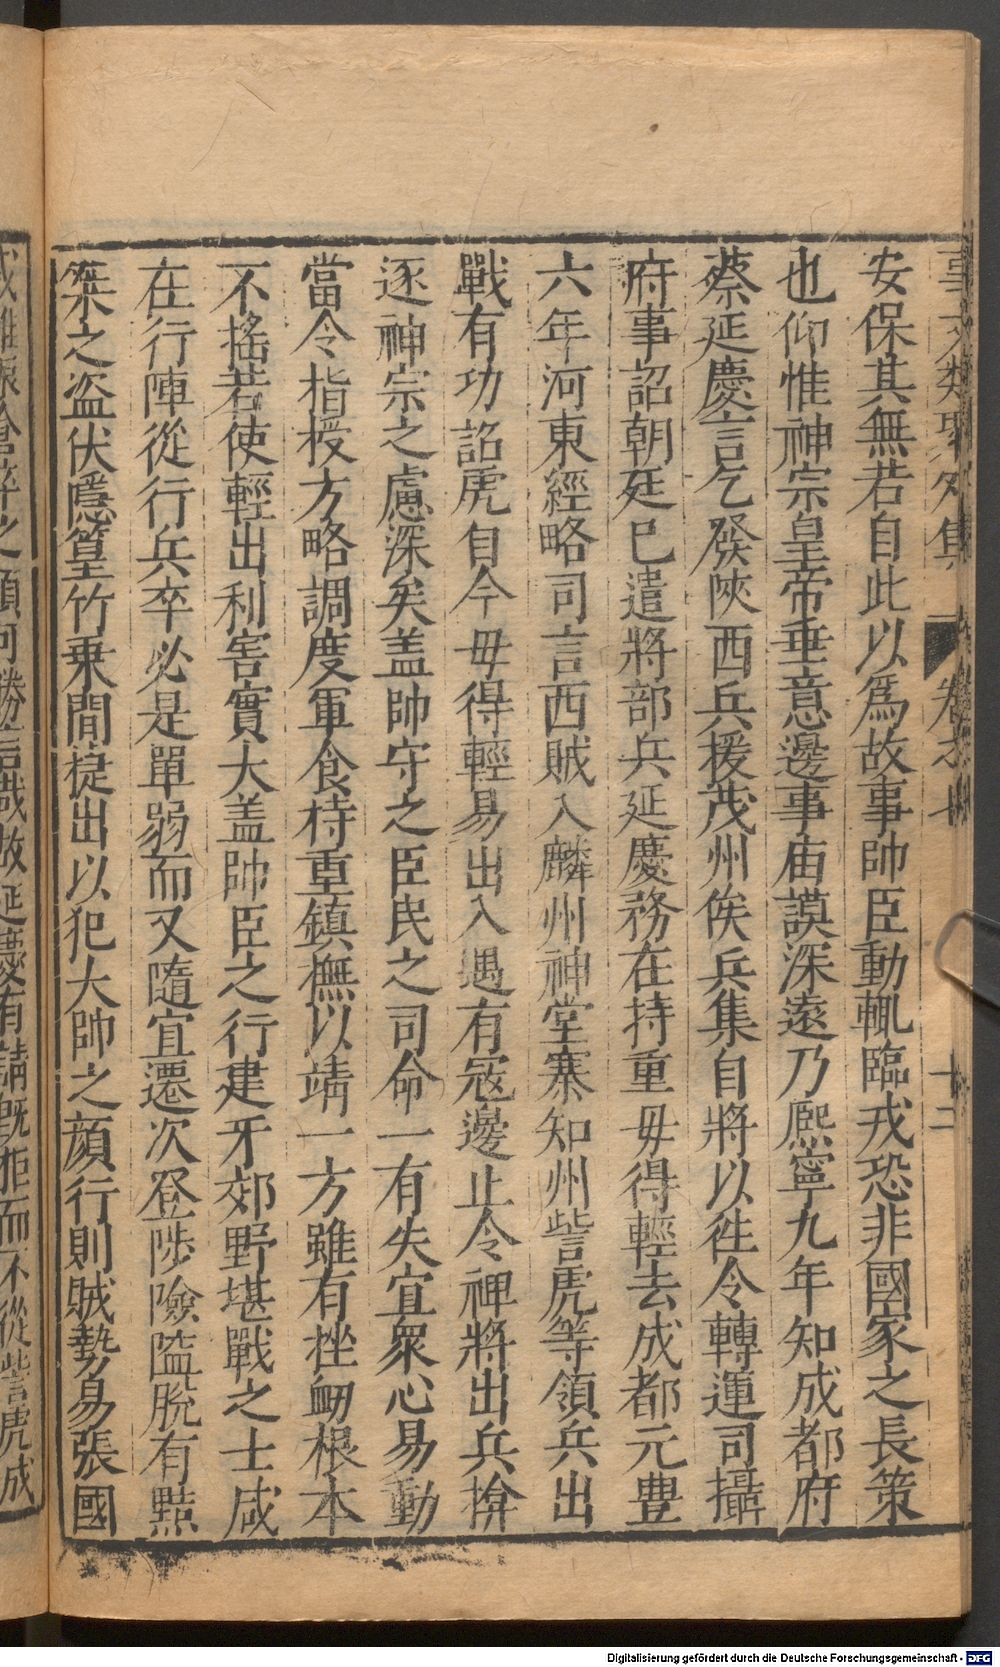 安保其無若自此以爲故事帥臣動輒臨戎恐非國家之長策
也仰惟神宗皇帝垂意邊事庙謨深遠乃熈寧九年知成都府
蔡延慶言乞發陝西兵援茂州俟兵集自將以徃令轉運司攝
府事詔朝廷已遣將部兵延慶務在持重毋得輕去成都元豊
六年河東經略司言西賊入麟州神堂寨知州訾虎等領兵出
戰有功詔虎自今毋得輕易出入遇有寇邊止令裨將出兵揜
逐神宗之慮深矣盖帥守之臣民之司命一有失宜衆心易動
當令指授方略調度軍食持重鎮撫以靖一方雖有挫衂根本
不搖若使輕出利害實大盖帥臣之行建牙郊野堪戰之士咸
在行陣從行兵卒必是單弱而又隨宜遷次登陟險隘脫有黠
桀之盜伏隱篁竹乗間㨂出以犯大帥之顔行則賊勢易張國
事文類聚外集 卷之七 十二
之 須何勝 故延慶有請旣拒而不從訾虎成
Digitalisierung gefördert durch die Deutsche Forschungsgemeinschaft - DFG